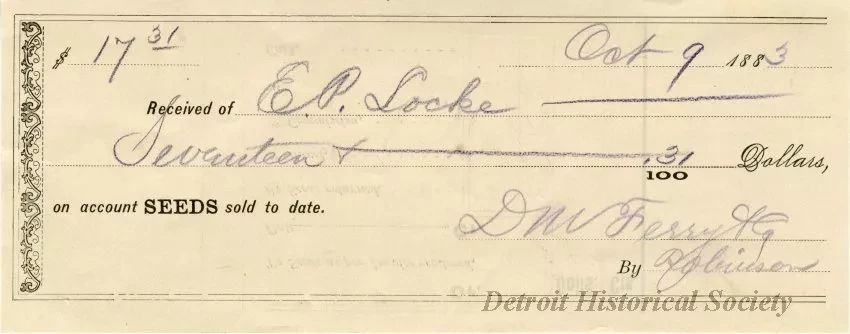 $ 17 31 Oct 9 1883
Received of E.P. Locke
Seventeen & .31/100 Dollars,
on account SEEDS sold to date.
D M Ferry & Co
By Robinson
Detroit Historical Society